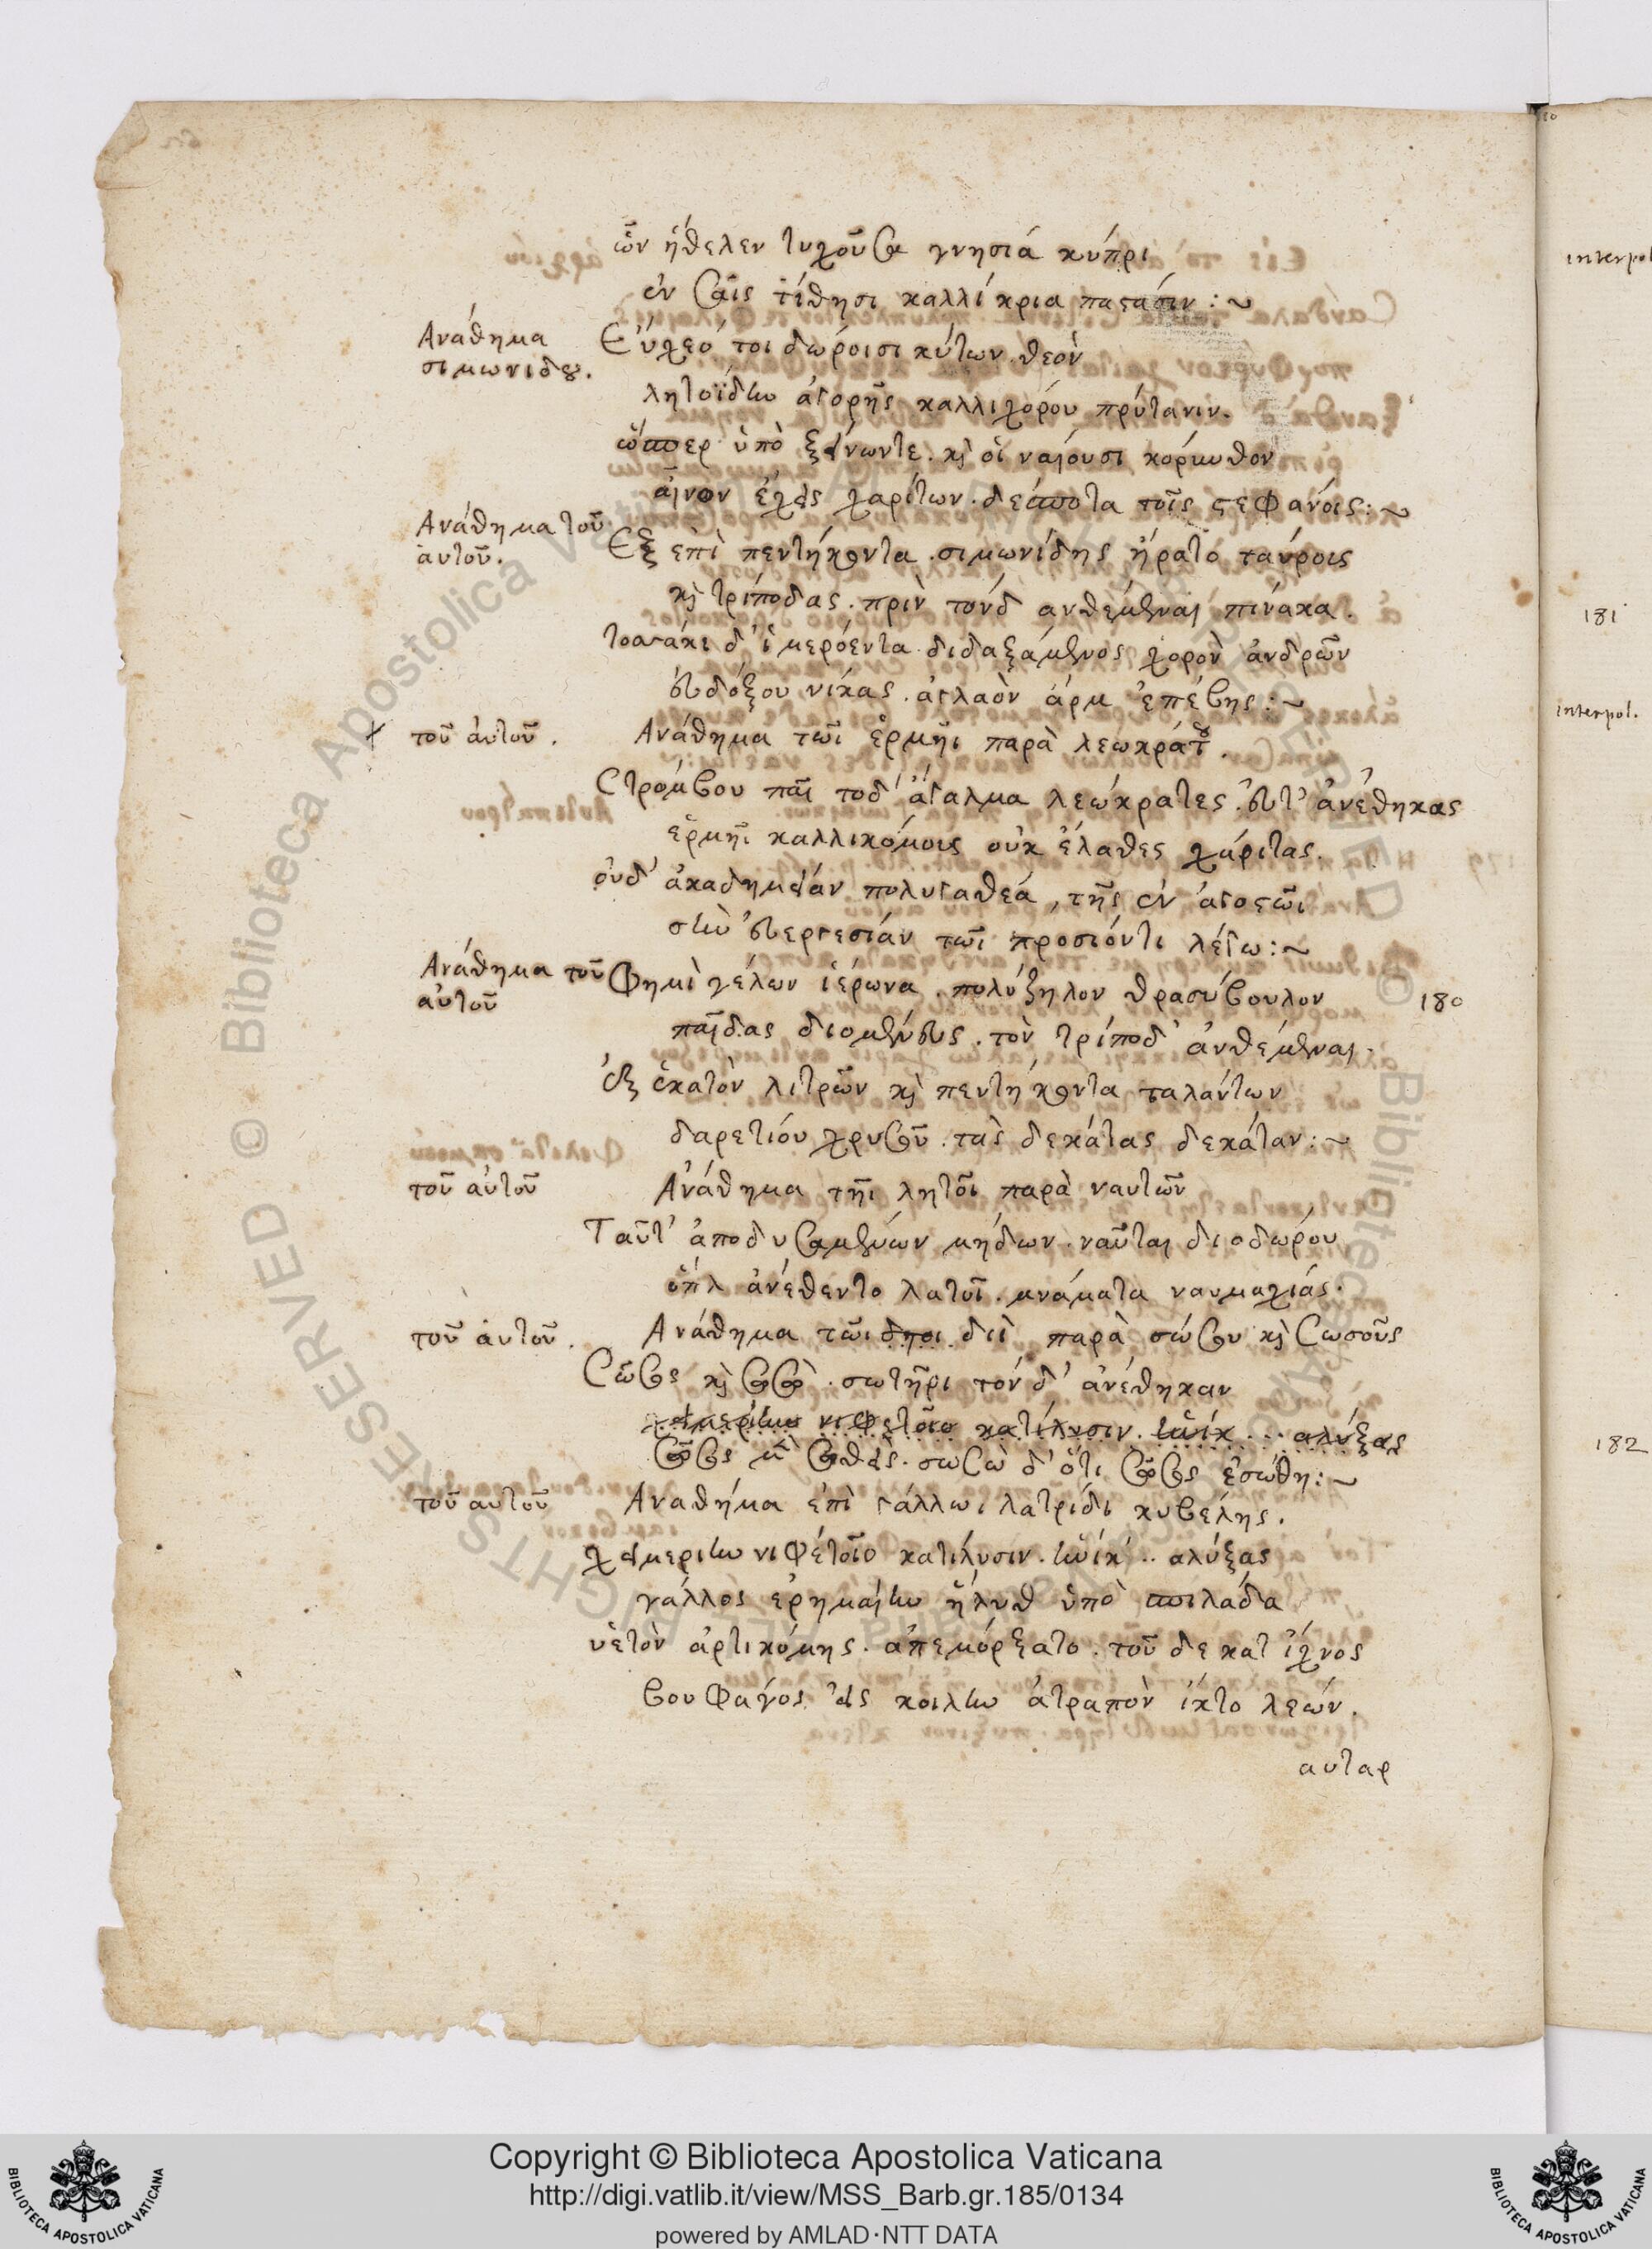 ὧν ἤθελεν τυχοῦσα γνησιά κύπρι
ἐν σαῖς τίθησι καλλίκρια παστάσιν :~
Ανάθημα
σιμωνιδου.
Εὔχεό τοι δώροισι κύτων. θεὸν
λητοϊδην ἀγορῆς καλλιχόρου πρύτανιν.
ὥσπερ ὑπὸ ξείνωντε. καὶ οἳ ναίουσι κόρινθον
αἶνον ἔχεις χαρίτων. δέσποτα τοῖς στεφανοις :~
Ανάθημα τοῦ
ἀυτοῦ.
Εξ ἐπὶ πεντήκοντα. σιμωνίδης ἤρατο ταύροις
καὶ τρίποδας. πρὶν τόνδ ανθέμεναι πίνακα.
τοσάκι δ' ἱμερόεντα διδαξάμενος χορὸν ἀνδρῶν
ἐυδόξου νίκας. ἀγλαὸν ἁρμ ἐπέβης :~
+ τοῦ ἀυτοῦ.
Ανάθημα τῶι ἑρμῆι παρὰ λεωκράτου.
Στρόμβου παῖ τοδ' ἄγαλμα λεώκρατες. ἐυτ' ἀνέθηκας
ἑρμῆι καλλικόμοις οὐκ ἔλαθες χάριτας.
ὀυδ' ἀκαδημειάν πολυγαθεά, τῆς ἐν ἀγοστῶι
σὴν ἐυεργεσίαν τῶι προσιόντι λέγω :~
Ανάθημα τοῦ
αὐτοῦ
Φημὶ γέλων ἱέρωνα. πολύζηλον θρασύβουλον
180
παῖδας διομένευς. τὸν τρίποδ' ἀνθέμεναι.
ἐξ ἑκατὸν λιτρῶν καὶ πεντήκοντα ταλάντων
δαρετίου χρυσοῦ. τᾶς δεκάτας δεκάταν :~
τοῦ αὐτοῦ
Ἀνάθημα τῆι λητοῖ παρὰ ναυτῶν
Ταῦτ' ἀπο δυσαμενέων μήδων. ναῦται διοδώρου
ὅπλ ἀνέθεντο λατοῖ. μνάματα ναυμαχιάς.
τοῦ ἀυτοῦ.
Ανάθημα τῶι διῒ παρὰ σώσου καὶ σωσοῦς
Σῶσος καὶ σωσὼ. σωτῆρι τόνδ' ἀνέθηκαν
χειμερίην νιφετοῖο κατίλυσιν. ἡνίκ ... αλύξας
σῶσος μὲν σωθεὶς. σωσὼ δ' ὅτι σῶσος ἐσώθη :~
τοῦ αυτοῦ
Αναθήμα ἐπὶ γάλλωι λατρίδι κυβέλης.
χειμεριην νιφέτοῖο κατίλυσιν. ἡνίκ' .. αλύξας
γάλλος ἐρημαίην ἤλυθ ὑπὸ σπιλάδα
ὑετὸν ἀρτικόμης. ἀπεμόρξατο. τοῦ δε κατ ἴχνος
βουφαγος εἰς κοιλην ἀτραπὸν ἱκτο λεών.
αυταρ
interpol
181
interpol.
182
Copyright © Biblioteca Apostolica Vaticana
http://digi.vatlib.it/view/MSS_Barb.gr.185/0134
powered by AMLAD·NTT DATA
BIBLIOTECA APOSTOLICA VATICANA
BIBLIOTECA APOSTOLICA VATICANA